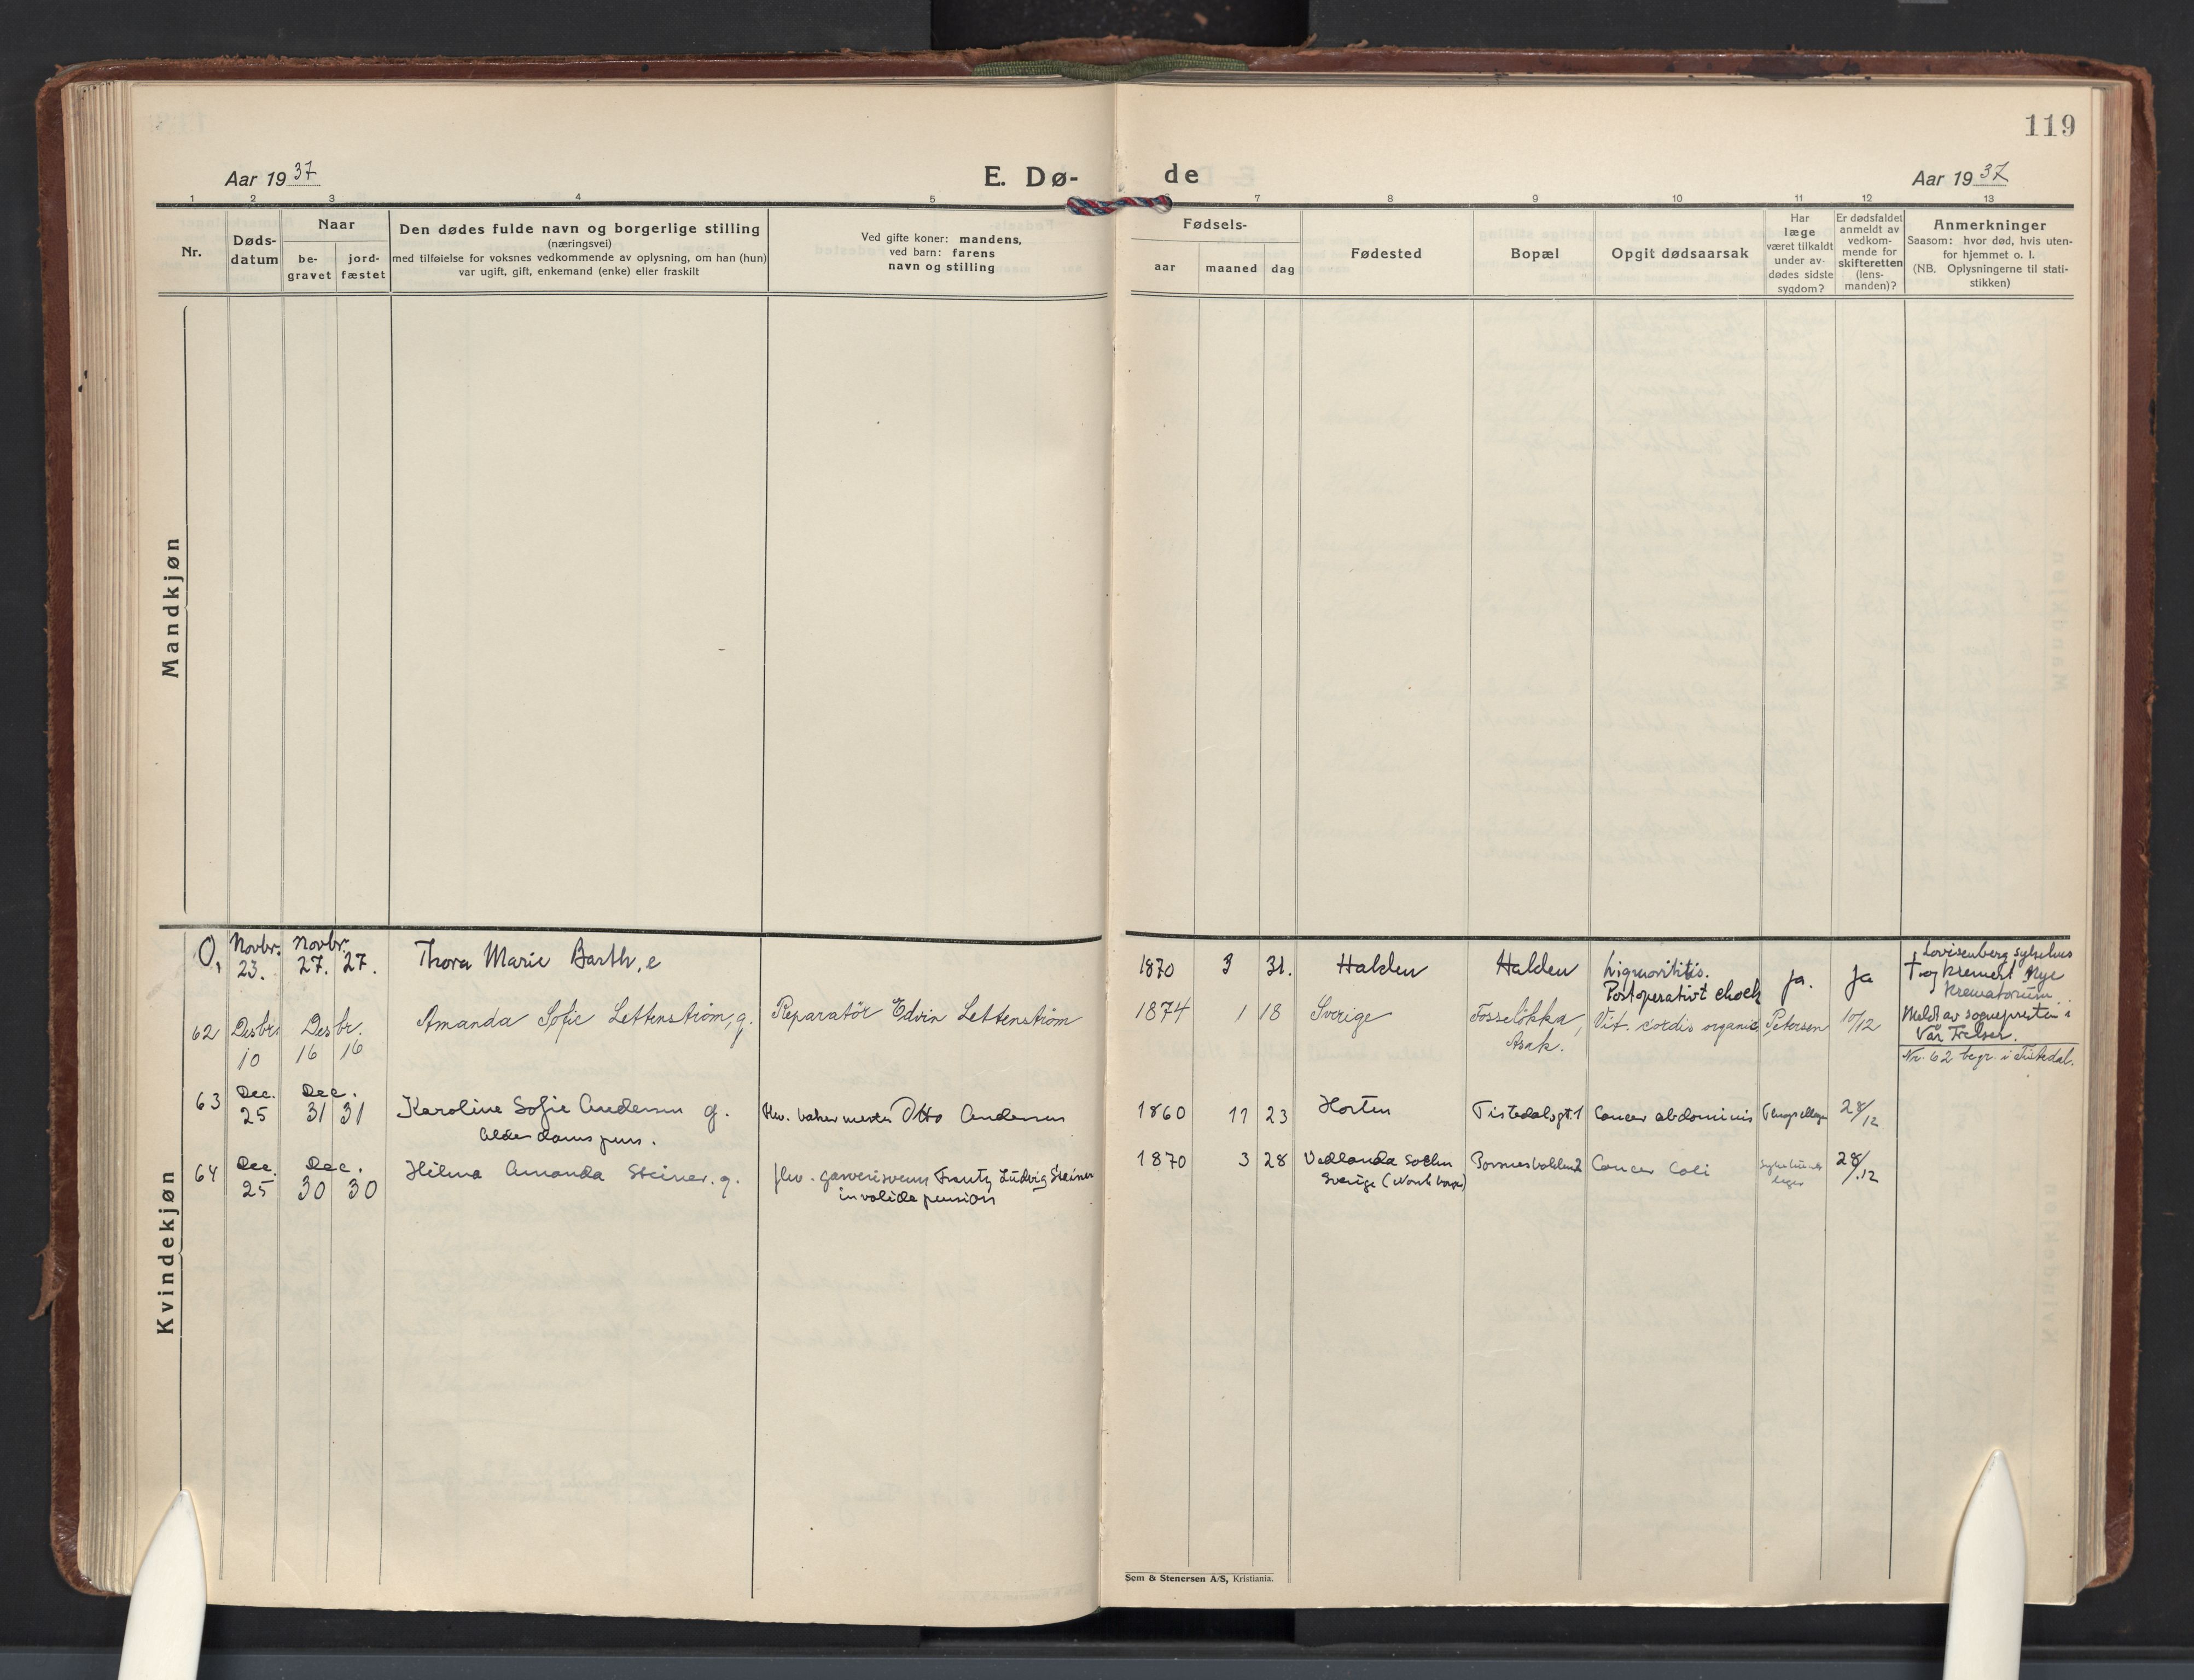 119
Aar 1937
E. Dø-
de
Aar 1937
1 2 3 4 5 6 7 8 9 10 11 12 13
Nr.
Døds-
datum
Naar
be-
gravet
jord-
fæstet
Den dødes fulde navn og borgerlige stilling
(næringsvei)
med tilføielse for voksnes vedkommende av oplysning, om han (hun)
var ugift, gift, enkemand (enke) eller fraskilt
Ved gifte koner: mandens,
ved barn: farens
navn og stilling
Fødsels-
aar
maaned
dag
Fødested
Bopæl
Opgit dødsaarsak
Har
læge
været tilkaldt
under av-
dødes sidste
sygdom?
Er dødsfaldet
anmeldt av
vedkom-
mende for
skifteretten
(lens-
manden)?
Anmerkninger
Saasom: hvor død, hvis uten-
for hjemmet o. l.
(NB. Oplysningerne til stati-
stikken)
Mandkjøn
Kvindekjøn
O, Novbr. 23. Novbr. 27. 27. Thora Marie Barth, e 1870 3 31. Halden Halden Postoperativt chock ja. Ja
Lovisenberg sykehus
† og kremert Nye
Krematorium
62 Desbr. 10 Desbr. 16 16 Amanda Sofie Lettenstrøm, g. Reparatör Edvin Lettenstrøm 1874 1 18 Sverige Fosseløkka, Asak. Vit. cordis organic Petersen 10/12
Meldt av sognepresten i
Vår Frelser.
Nr. 62 begr. i Tistedal.
63 Dec. 25 Dec. 31 31 Karoline Sofie Andersen g. Otto Andersen 1860 11 23 Horten Tistedalsgt. 1 Cancer abdominis 28/12
alderdoms pens.
64 Dec. 25 Dec. 30 30 Hilma Amanda Steiner. g. fhv. garverisvenn Frantz Ludvig Steiner 1870 3 28 Cancer Coli 28/12
invalidepension
Sverige
Sem & Stenersen A/S, Kristiania.